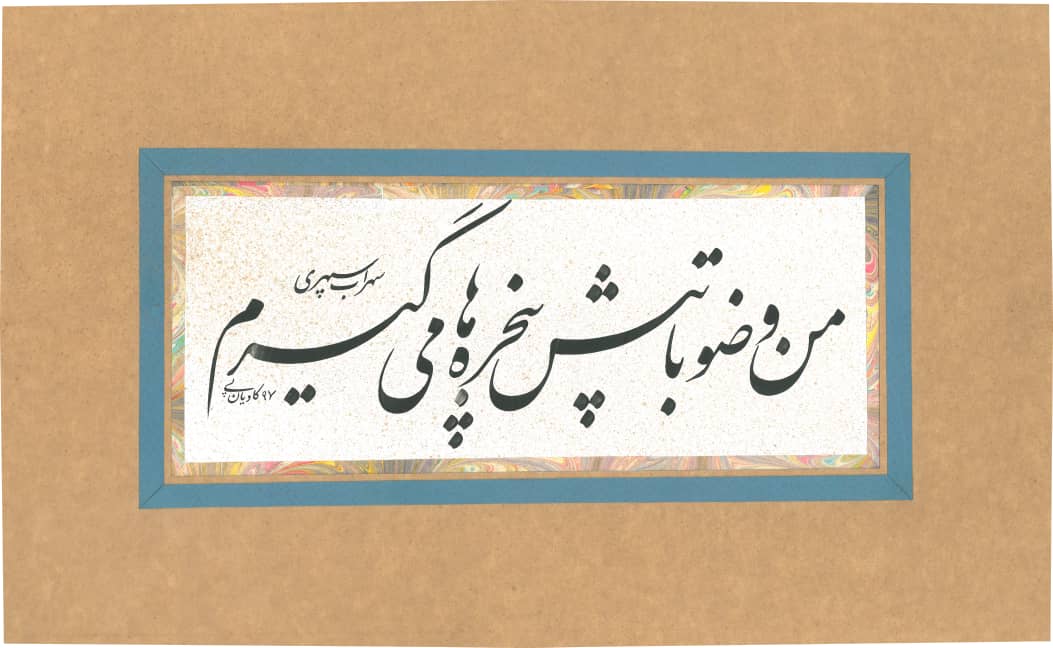 من وضو با تپش پنجره ها می گیرم
سهراب سپهری
کاویان پی ۹۷